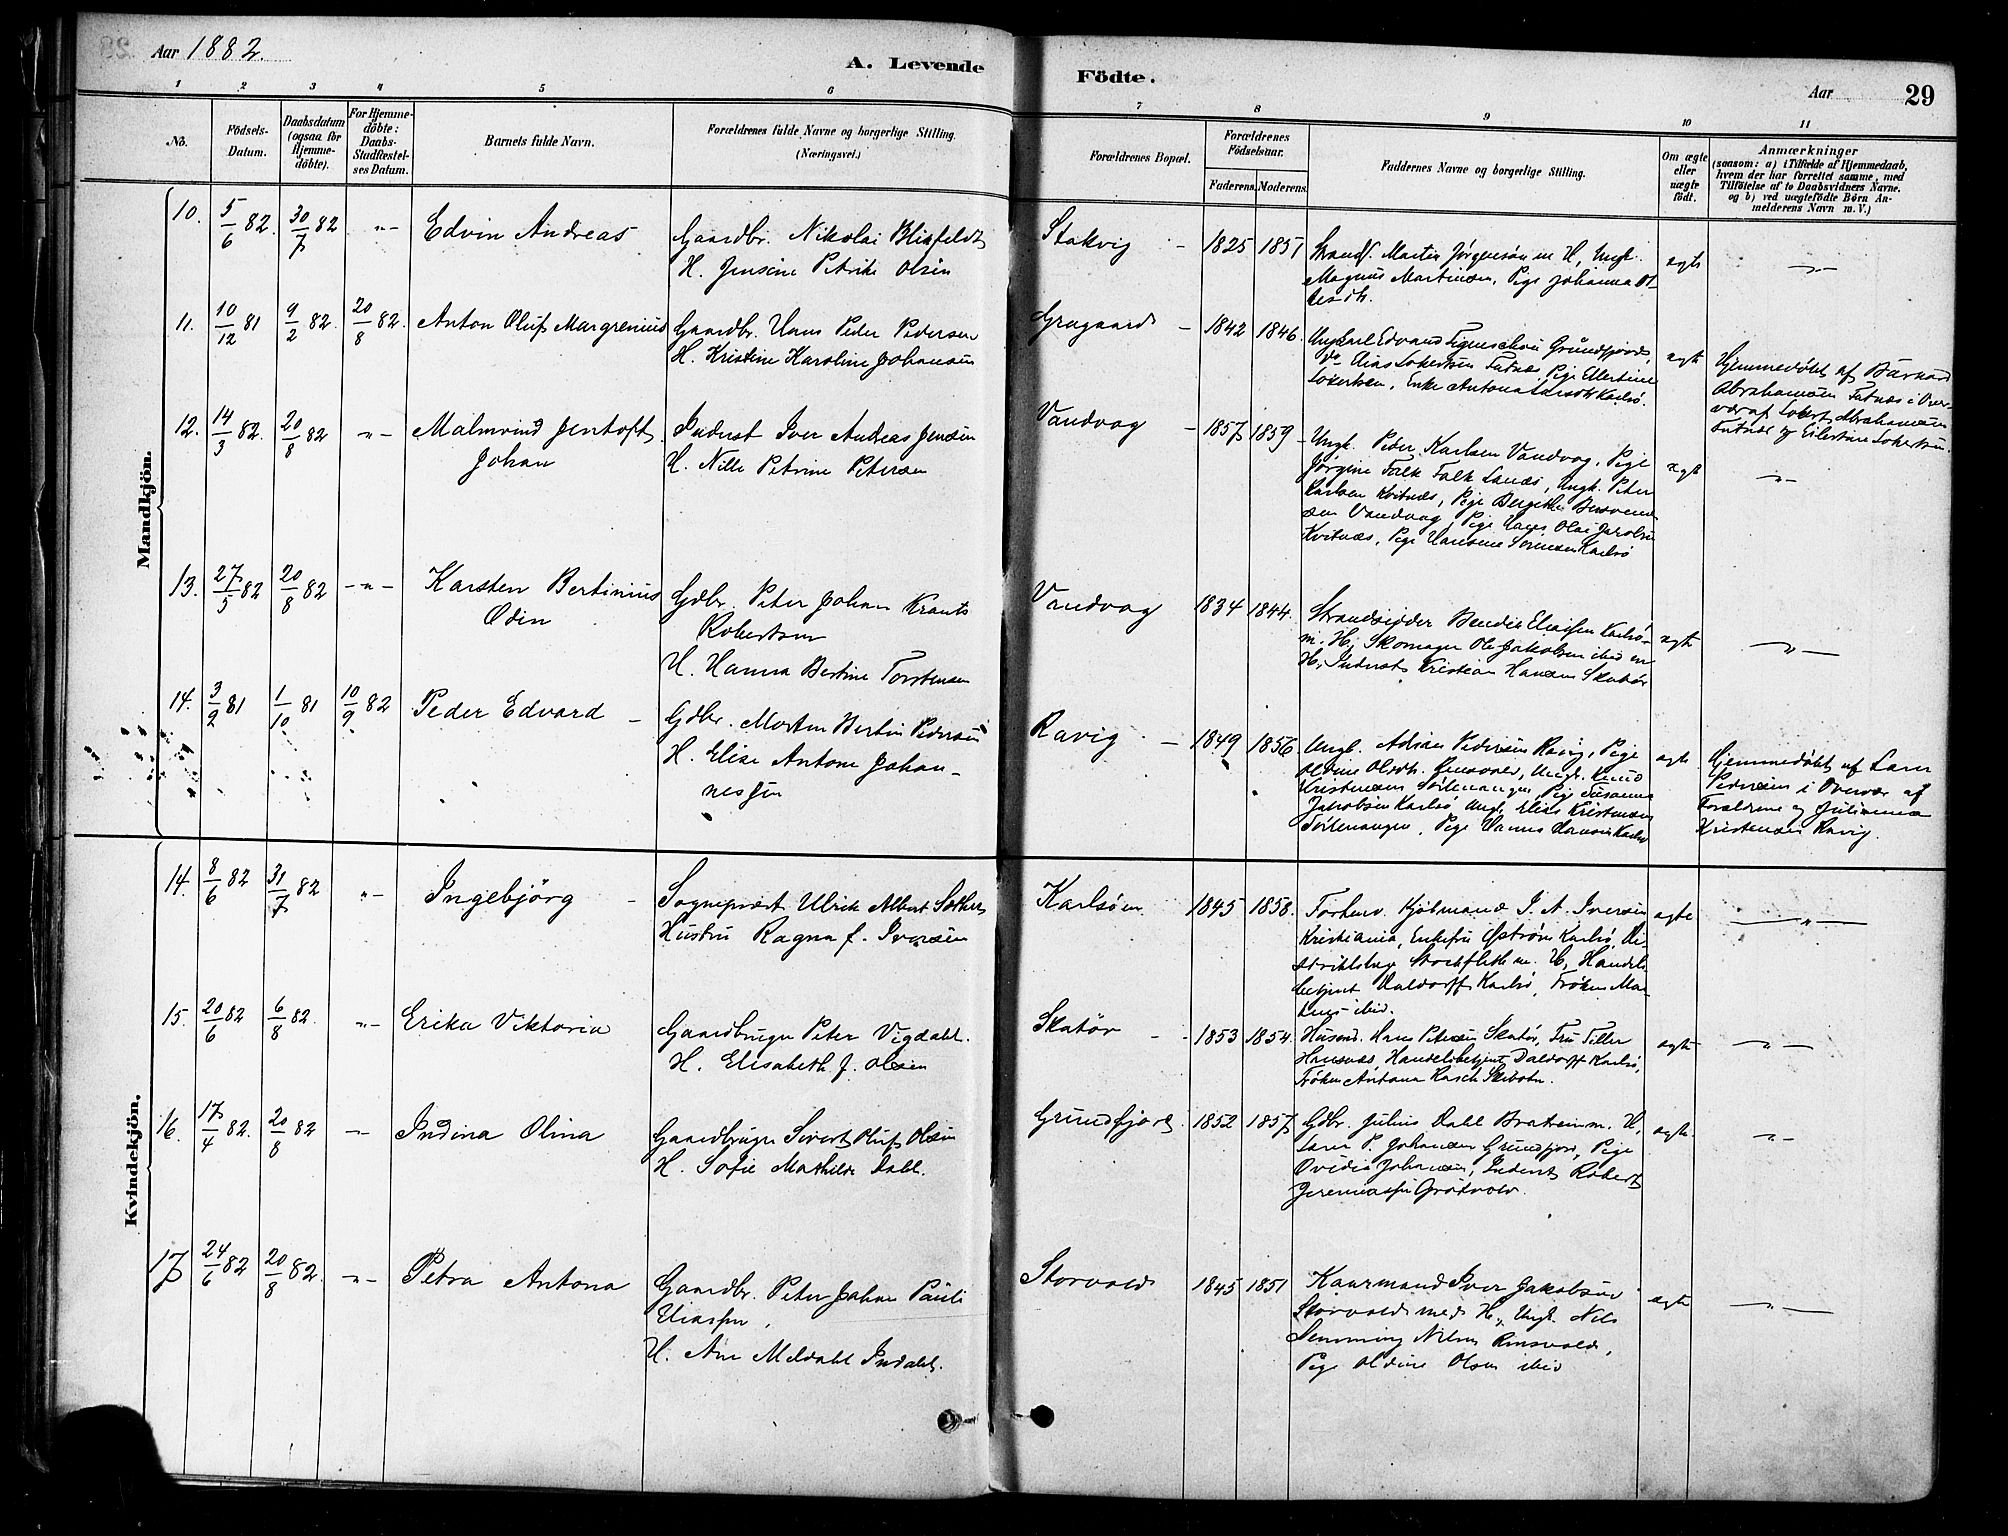 Aar 1882.
A. Levende Födte.
Aar
29
1 2 3 4 5 6 7 8 9 10 11
No.
Födsels-
Datum.
Daabsdatum
(ogsaa för
Hjemme-
döbte).
For Hjemme-
döbte:
Daabs-
Stadfæstel-
ses Datum.
Barnets fulde Navn.
Forældrenes fulde Navne og borgerlige Stilling.
(Næringsvei.)
Forældrenes Bopæl.
Forældrenes
Födselsaar.
Faderens. Moderens.
Faddernes Navne og borgerlige Stilling.
Om ægte
eller
uægte
födt.
Anmærkninger
(saasom: a) i Tilfælde af Hjemmedaab,
hvem der har forrettet samme, med
Tilföielse af to Daabsvidners Navne.
og b) ved uægtefödte Börn An-
melderens Navn m. V.)
Mandkjön.
10. 5/6 82. 30/7 82 -"- Edvin Andreas
Gaardbr. Nikolai Blixfeldt
H. Jensine Petrike Olsen
Stakvig - 1825 1851
Strands. Martin Jörgensön m H, Ungk.
Magnus Martinsen, Pige Johanna Ol-
ægte -"-
11. 10/12 81 9/2 82. 20/8 82. Anton Oluf Margrenius
Gaardbr. Hans Peder Pedersen
H. Kristine Karoline Johansen
Graagaard - 1842 1846.
Ungkarl Edvard Figenschou Grundfjord,
do Elias Lokertsen Fatnæs, Pige Ellertine
Lokertsen, Enke Antona Larsdtr Karlsö.
ægte
Hjemmedöbt af Barnard
Abrahamsen Fatnæs i Over-
vær af Lokert Abrahamsen
Fatnæs og Ellertine Lokertsen.
12. 14/3 82. 20/8 82 -"- Malmvind Jentoft
Johan
Inderst Iver Andreas Jensen
H. Nille Petrine Petersen
Vandvag - 1857 1859
Ungk. Peder Karlsen Vandvag, Pige
Jörgine Falk Falk Sandes, Ungk. Peter
Karlsen Kvitnæs, Pige Bergithe
sen Vandvag, Pige Hans Olai Jakobsen
Kvitnæs, Pige Hansine Karlsö
ægte -"-
13. 27/5 82 20/8 82 -"- Karsten Bertinius
Odin
Gdbr. Peter Johan Krants
Robertsen
H. Hanna Bertine Torstensen
Vandvag 1834 1844.
Strandsidder Bendix Eliassen Karlsö
m. H, Skomager Ole Jakobsen ibid m
H, Inderst Kristian Hansen Skatör
ægte -"-
14. 3/9 81 1/10 81 10/9 82 Peder Edvard -
Gdbr. Morten Bertin Pedersen
H. Elise Antone Johan-
nessen
Ravig - 1849 1856.
Ungk. Adrian Pedersen Ravig, Pige
Oldine Olsdtr. Grunvold, Ungk. Knud
Kristensen Sörlenangen, Pige Susanna
Jakobsen Karlsö, Ungk. Elias Kristensen
Sörlenangen, Pige Hanna Hansen Karlsö
ægte
Hjemmedöbt af Lars
Pedersen i Overvær af
Forældrene og Julianna
Kristensen Ravig.
Kvindekjön.
14. 8/6 82 31/7 82 -"- Ingebjörg -
Sognepræst Ulrik Albert Sothers
Hustru Ragna f. Iversen
Karlsöen 1845 1858.
Forhenv. Kjöbmand I. A. Iversen
Kristiania, Enkefru Öström Karlsö, Di-
striktslæge Stockfleth m. H, Handels
betjent Daldorff Karlsö, Fröken
ibid.
ægte -"-
15. 20/6 82 6/8 82. -"- Erika Viktoria
Gaardbruger Peter Vigdahl.
H. Elisabeth f. Olsen
Skatör - 1853 1854.
Husmd. Hans Petersen Skatör, Fru Tiller
Hansnæs, Handelsbetjent Daldorff Karlsö,
Fröken Antona Rasch Skibotn.
ægte -"-
16. 17/4 82. 20/8 82 -"- Indina Olina
Gaardbruger Sivert Oluf Olsen
H. Sofie Mathilde Dahl.
Grundfjord. 1852 1857
Gdbr. Julius Dahl Bratrein m. H,
Lars P. Johansen Grundfjord, Pige
Ovidia Johansen, Inderst Robert
Jeremiassen Grötvold.
ægte. -"-
17 24/6 82 20/8 82. -"- Petra Antona
Gaardbr. Peter Johan Pauli
Eliassen,
H. Ane Meldahl Indahl.
Storvold 1845 1851
Kaarmand Iver Jakobsen
Storvold med H., Ungk. Nils
Lemming Nilsen
Pige Oldine Olsen ibid
ægte -"-